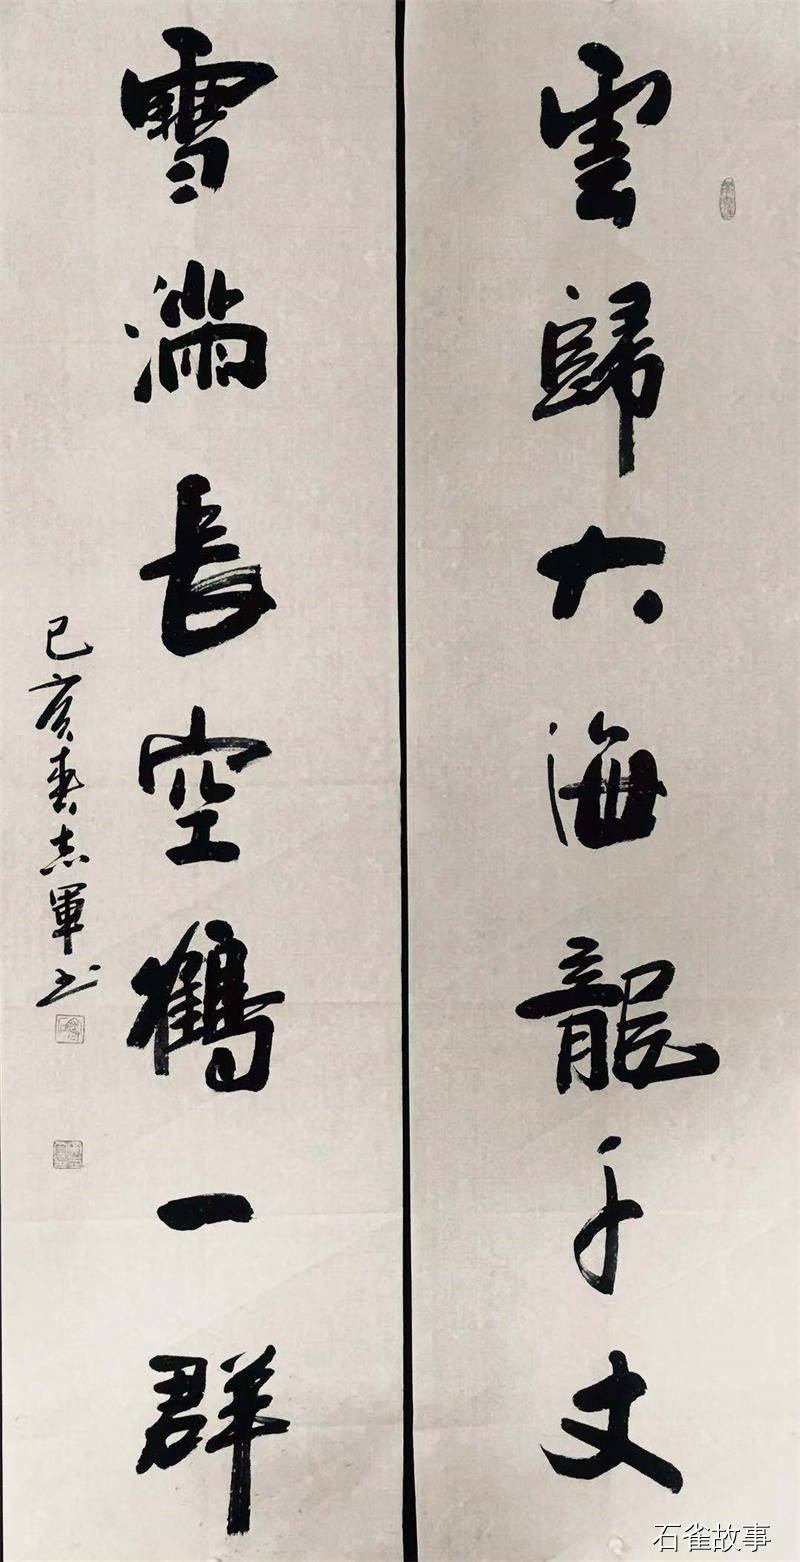 雲歸大海龍千丈
雪滿長空鶴一群
己亥春志軍书
石雀故事